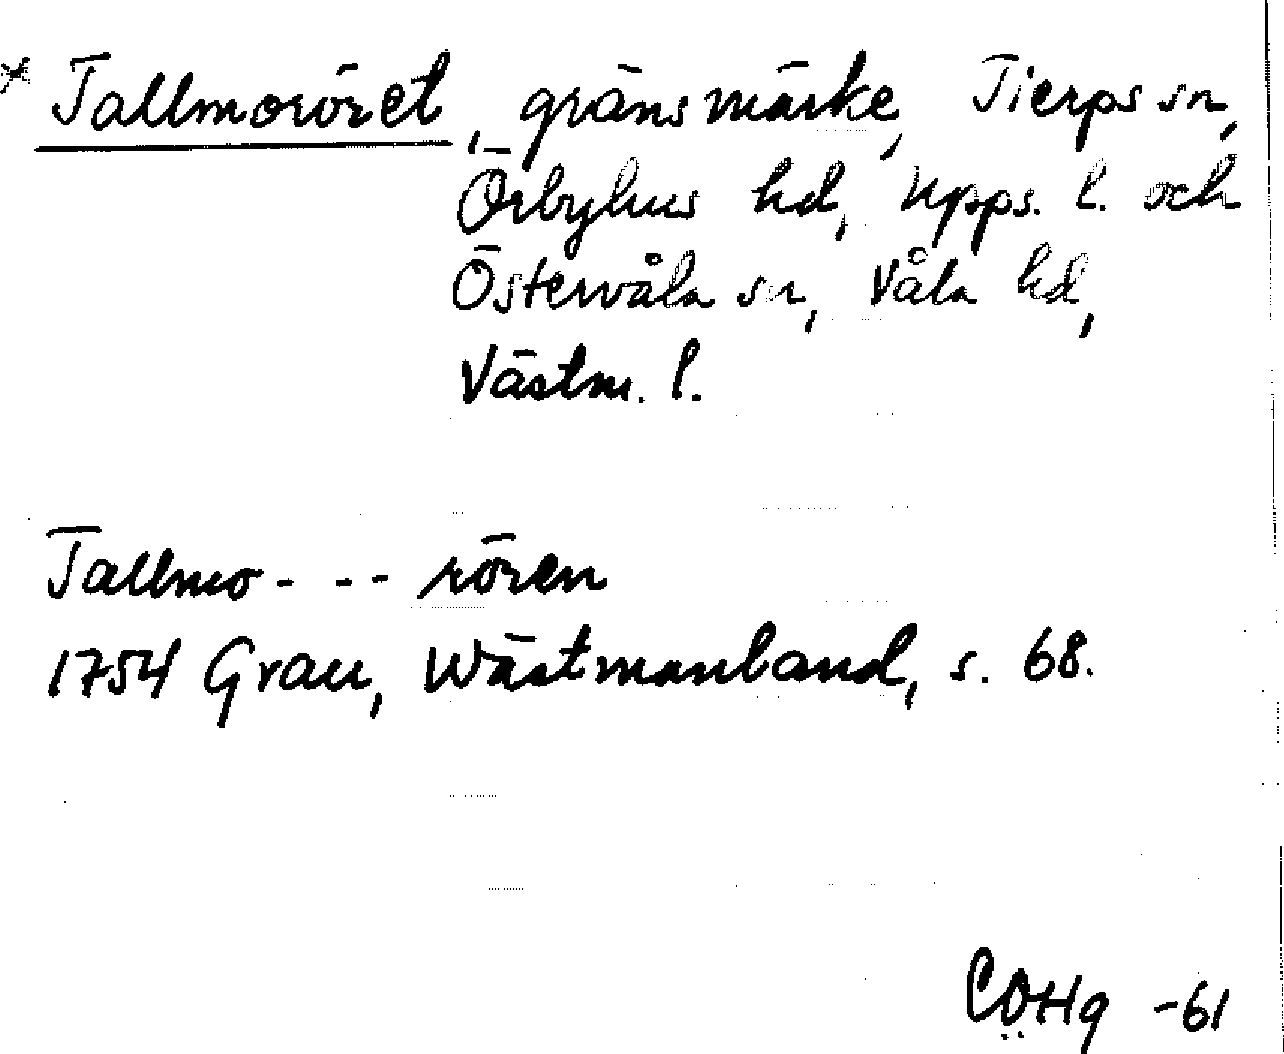 × Tallmoröret, gränsmärke, Tierps sn,
Örbyhus hd, Upps. l. och
Östervåla sn, Våla hd,
Västm. l.
Tallmo- -- rören
1754 Grau, Wästmanland, s. 68.
CÖHg -61